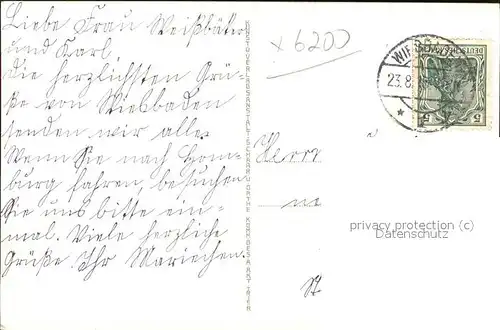 Liebe Frau Weißbäcker
und Karl
die herzlichsten Grü-
ße von Wiesbaden
senden wir alle.
Wenn Sie nach Hom-
burg fahren, besuchen
Sie uns bitte ein-
mal. Viele herzliche
Grüße. Ihr Mariechen.
x 6200
23.8.
5 5
Herrn
ne
St
privacy protection (c)
Datenschutz